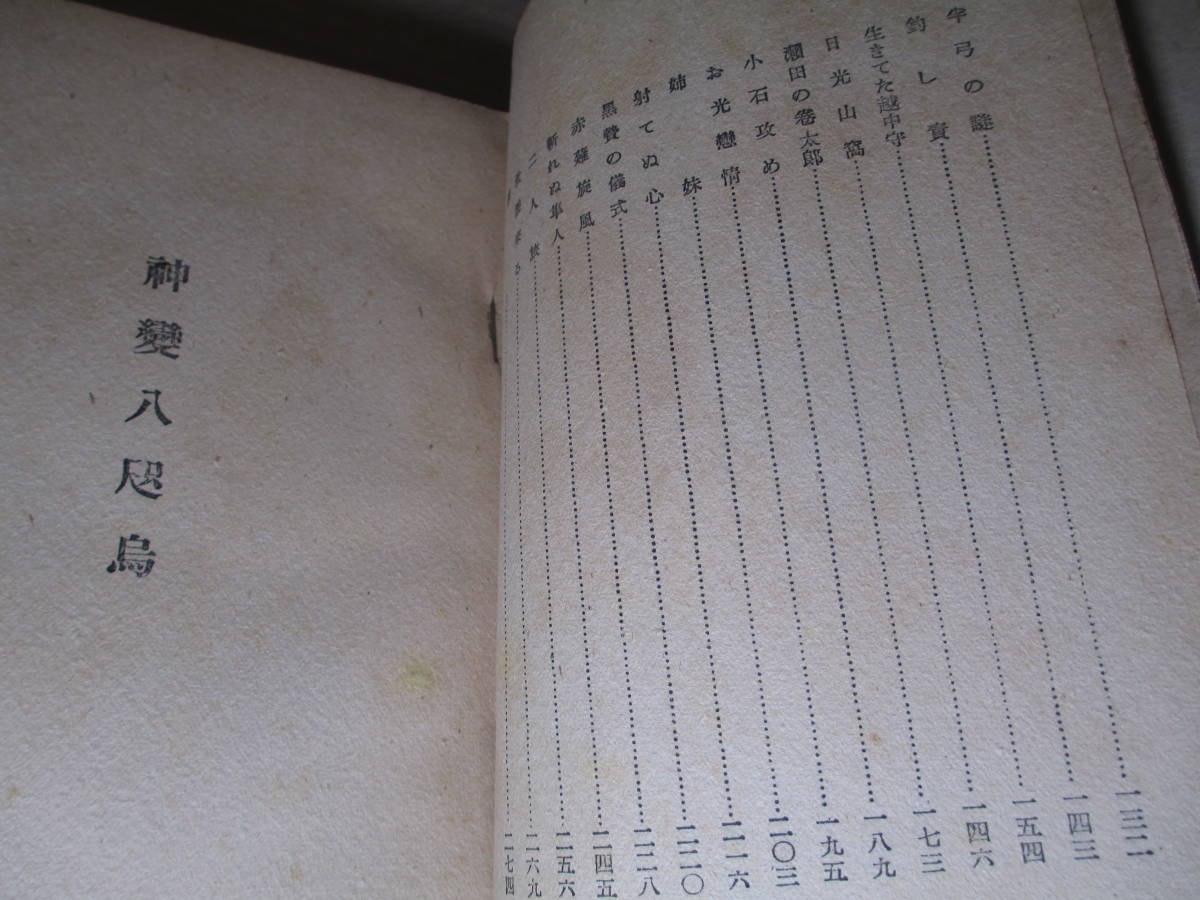 半弓の謎……一三二
釣し責……一四三
生きてた越中守……一五四
日光山窩……一四六
田の巻太郎……一七三
小石攻め……一八九
お光戀情……一九五
姉妹……二〇三
射てぬ心……二一六
黒贄の儀式……二二〇
赤薙旋風……二二八
斬れぬ隼人……二四五
二人旅……二五六
る……二六九
二七四
神變八咫烏